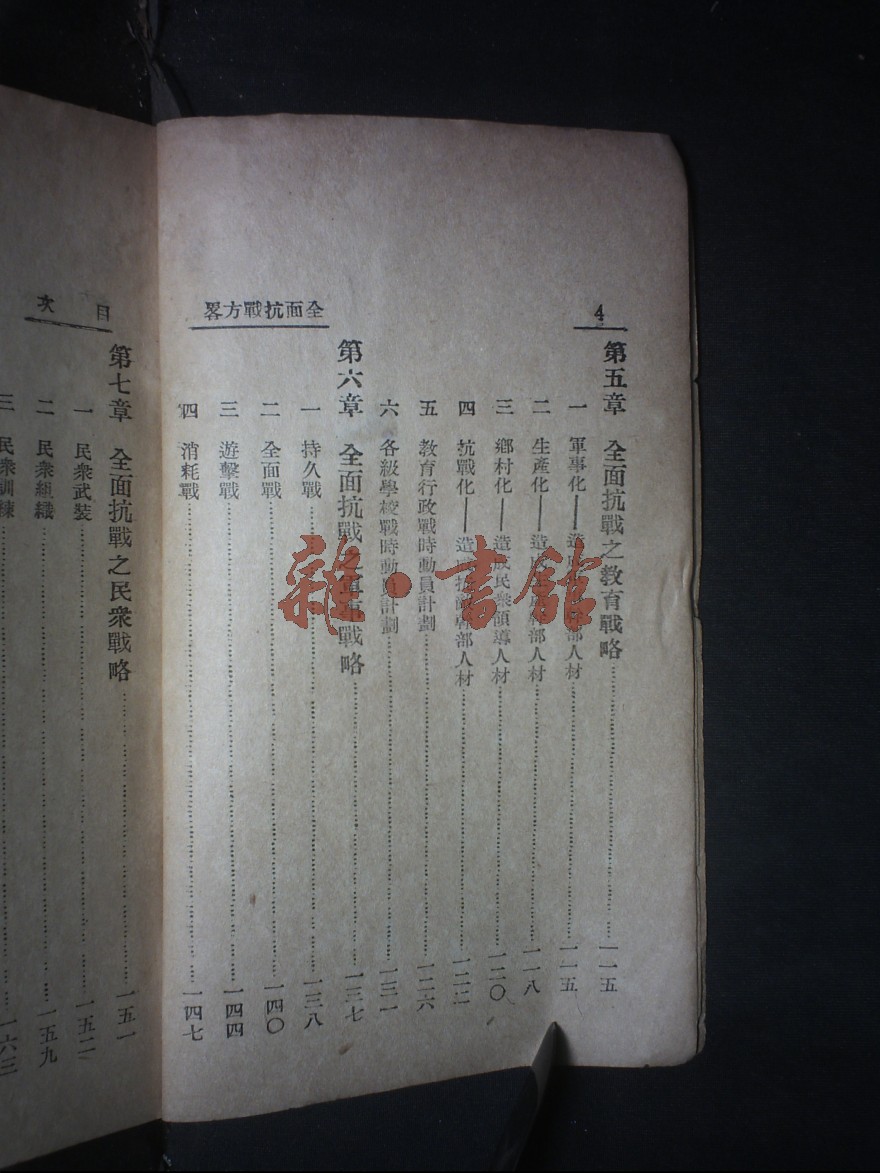 4
全面抗戰方畧
第五章　全面抗戰之教育戰略……一一五
一　軍事化——造成部人材……一一五
二　生產化——造成幹部人材……一一八
三　鄉村化——造成民衆領導人材……一二〇
四　抗戰化——造成抗敵幹部人材……一二二
五　教育行政戰時動員計劃……一二六
六　各級學校戰時動員計劃……一三一
第六章　全面抗戰之軍事戰略……一三七
一　持久戰……一三八
二　全面戰……一四〇
三　遊擊戰……一四四
四　消耗戰……一四七
目次
第七章　全面抗戰之民衆戰略……一五一
一　民衆武裝……一五二
二　民衆組織……一五九
三　民衆訓練……一六三
雜·書館